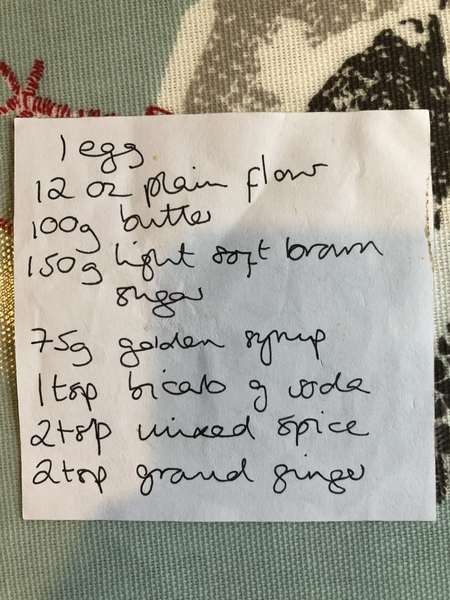 1 egg
12 oz plain flour
100g butter
150g light soft brown
sugar
75g golden syrup
1 tsp bicarb of soda
2 tsp mixed spice
2 tsp ground ginger